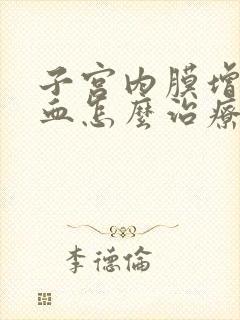 子宮内膜增
血怎麼治療
李德倫